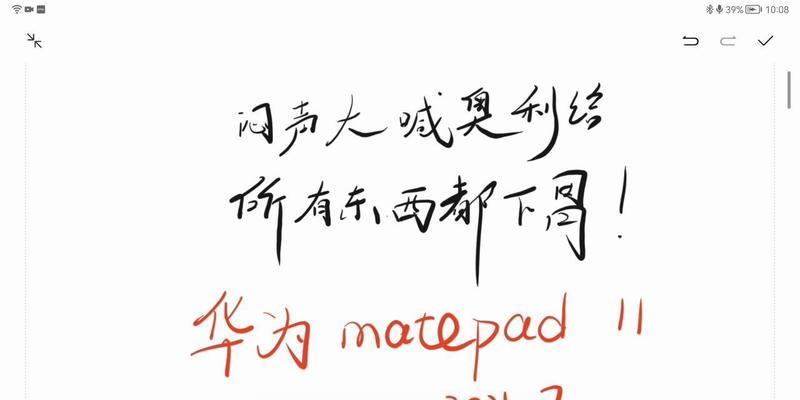 39% 10:08
闷声大喊奥利给
所有东西都下!
华为 matepad 11